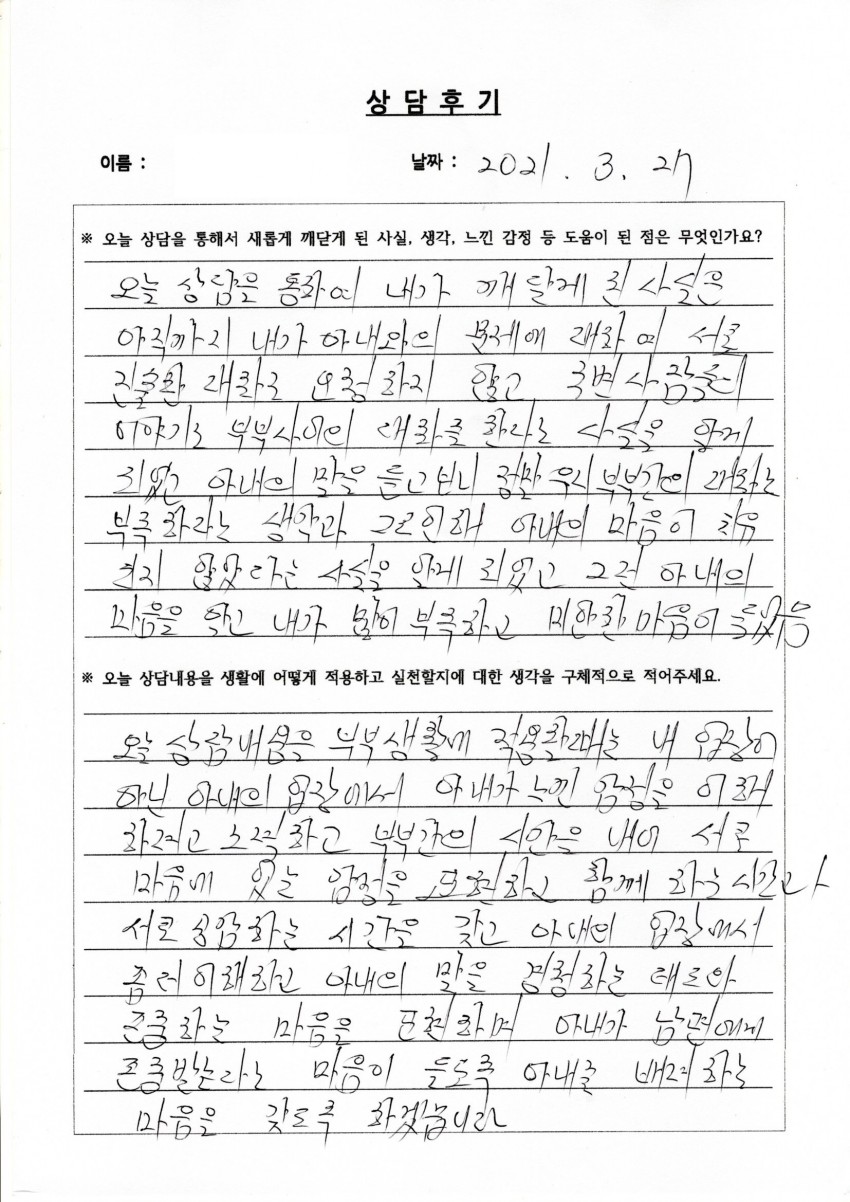 상 담 후 기
이름 : 날짜 : 2021. 3. 27
※ 오늘 상담을 통해서 새롭게 깨닫게 된 사실, 생각, 느낀 감정 등 도움이 된 점은 무엇인가요?
오늘 상담을 통하여 내가 깨달게 된 사실은
아직까지 내가 아내와의 문제에 대하여 서로
진솔한 대화로 요청하지 않고 주변사람들의
이야기로 부부사이의 대화를 한다는 사실을 알게
되었고 아내의 말을 듣고보니 정말 우리부부간의 대화는
부족하다는 생각과 그로인해 아내의 마음이 치유
되지 않았다는 사실을 알게 되었고 그런 아내의
마음을 알고 내가 많이 부족하고 미안한 마음이 들었음
※ 오늘 상담내용을 생활에 어떻게 적용하고 실천할지에 대한 생각을 구체적으로 적어주세요.
오늘 상담내용을 부부생활에 적용할때는 내 입장이
아닌 아내의 입장에서 아내가 느낀 감정을 이해
하려고 노력하고 부부간의 시간을 내어 서로
마음에 있는 감정을 표현하고 함께 하는 시간과
서로 공감하는 시간을 갖고 아내의 입장에서
좀더 이해하고 아내의 말을 경청하는 태도와
존중하는 마음을 표현하며 아내가 남편에게
존중받는다는 마음이 들도록 아내를 배려하는
마음을 갖도록 하겠습니다